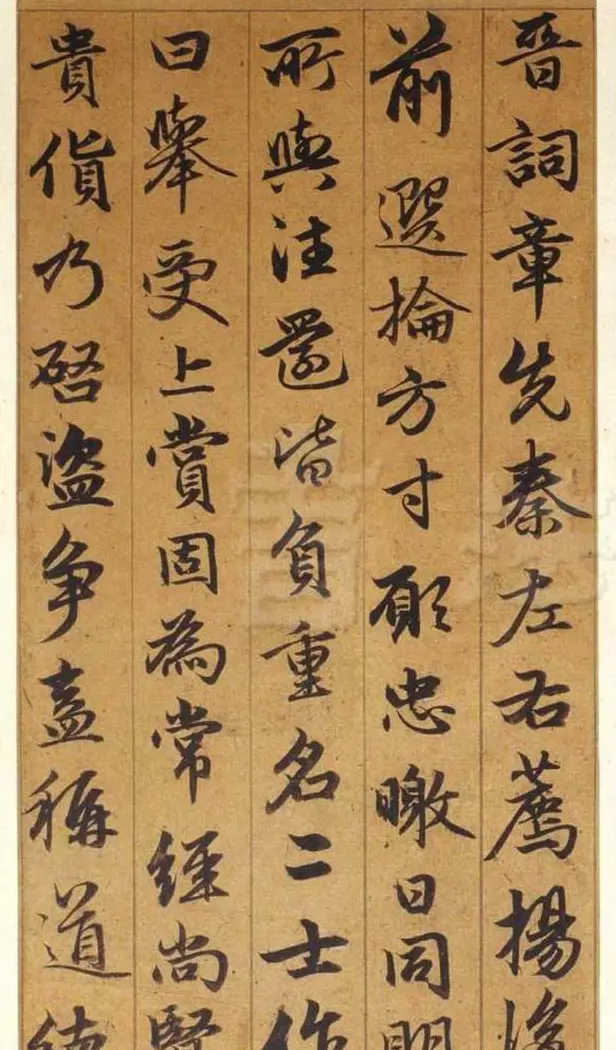 晉詞章先秦左右薦揚後
前選掄方寸願忠曒日同明
所與注還皆負重名二士作
曰舉受上賞固為常經尚賢
貴貨乃啓盜爭盍稱道德